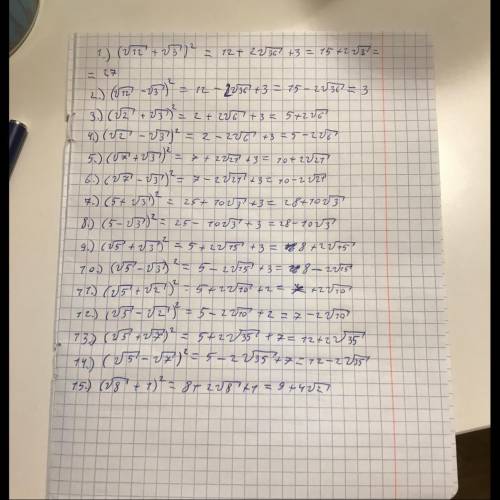 1) (√12 + √3)² = 12 + 2√36 + 3 = 15 + 2√3 =
= 27
2.) (√12 - √3)² = 12 - 2√36 + 3 = 15 - 2√36 = 3
3.) (√2 + √3)² = 2 + 2√6 + 3 = 5 + 2√6
4.) (√2 - √3)² = 2 - 2√6 + 3 = 5 - 2√6
5.) (√7 + √3)² = 7 + 2√21 + 3 = 10 + 2√21
6.) (√7 - √3)² = 7 - 2√21 + 3 = 10 - 2√21
7.) (5 + √3)² = 25 + 10√3 + 3 = 28 + 10√3
8.) (5 - √3)² = 25 - 10√3 + 3 = 28 - 10√3
9.) (√5 + √3)² = 5 + 2√15 + 3 = 8 + 2√15
10.) (√5 - √3)² = 5 - 2√15 + 3 = 8 - 2√15
11.) (√5 + √2)² = 5 + 2√10 + 2 = + 2√10
12.) (√5 - √2)² = 5 - 2√10 + 2 = 7 - 2√10
13.) (√5 + √7)² = 5 + 2√35 + 7 = 12 + 2√35
14.) (√5 - √7)² = 5 - 2√35 + 7 = 12 - 2√35
15.) (√8 + 1)² = 8 + 2√8 + 1 = 9 + 4√2